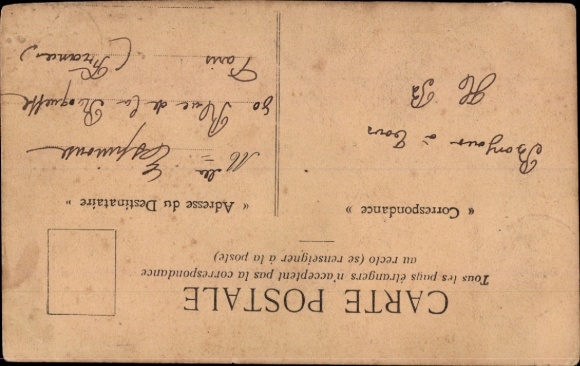 CARTE POSTALE
Tous les pays étrangers n'acceptent pas la correspondance
au recto (se renseigner à la poste)
« Correspondance »
« Adresse du Destinataire »
Bonjour à tous
Mlle Espinouse
80 Rue de la Roquette
Paris
(France)